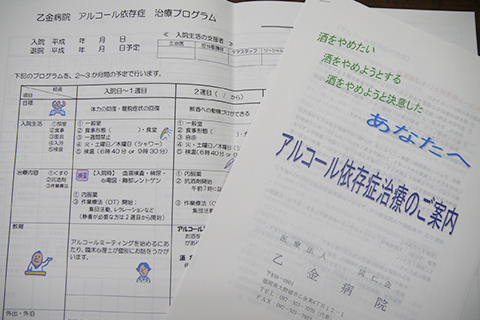 乙金病院 アルコール依存症 治療プログラム
入院 平成 年 月 日
退院 平成 年 月 日予定
≪ 入院生活の支援者 ≫
主治医 担当看護師 ケアスタッフ ソーシャル
下記のプログラムを、2～3か月間の予定で行います。
経過
項目
入院日～1週目
2週目(/から)
目標
体力の回復・離脱症状の回復
断酒への動機づけができる
入院生活
①部屋
②食事
③面会
④入浴
⑤検温
① 一般室
② 食事形態( )・食堂
③ 一週間禁止
④ 火・土曜日／木曜日(シャワー)
⑤ 検温(6時40分 or 9時30分)
① 一般室
② 食事形態(
③ 自由
④ 火・土曜日／木
⑤ 検温(6時40分
治療内容
①くすり
②抗酒剤
③作業療法
【入院時】 血液検査・検尿・
心電図・胸部レントゲン
① 内服薬
③ 作業療法(OT)開始:
集団活動、レクレーションなど
(静養が必要な方は2週目から開始)
① 内服薬
② 抗酒剤開始
午前7時に
③ 作業療法
集団活
教育
アルコールミーティングを始めるにあ
たり、臨床心理士が個別にお話をうかが
います。
アルコール
お酒
外出・外泊
酒をやめたい
酒をやめようとする
酒をやめようと決意した
あなたへ
アルコール依存症治療のご案内
医療法人
乙金病院